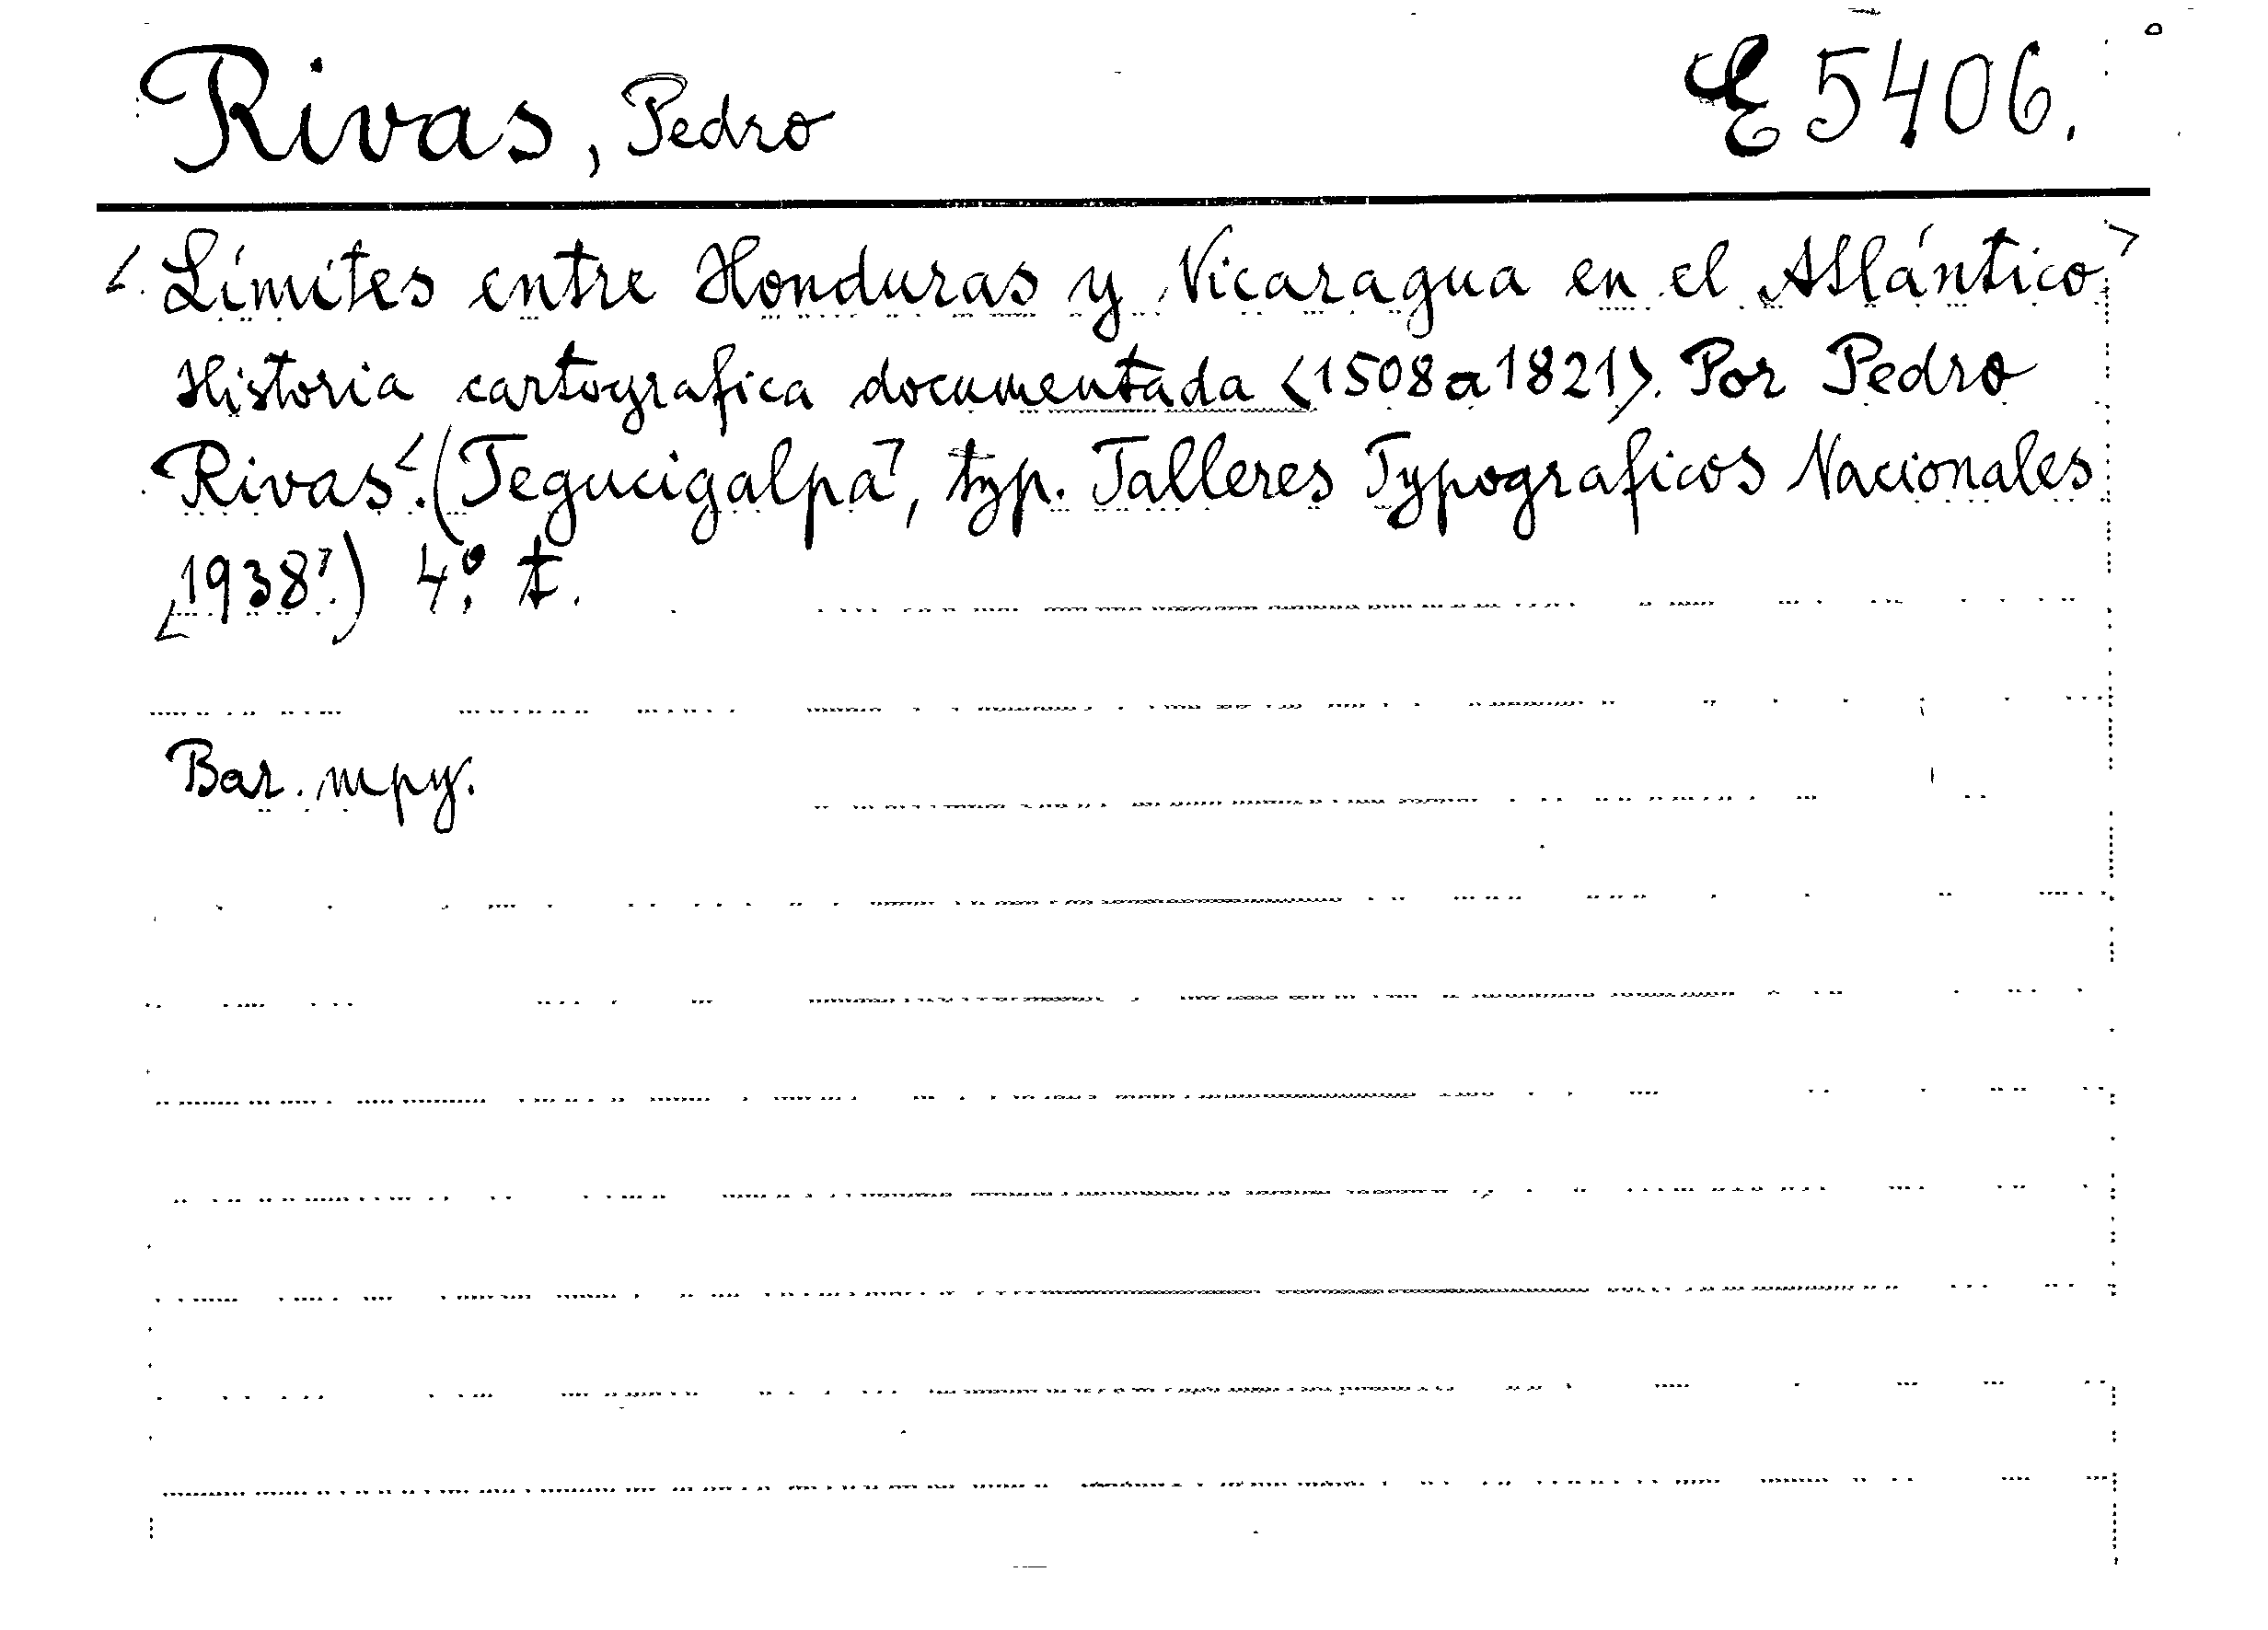 Rivas, Pedro E 5406.
<Límites entre Honduras y Nicaragua en el Atlántico>
Historia cartografica documentada <1508 a 1821>. Por Pedro
Rivas.<(Tegucigalpa>, typ. Talleres Typograficos Nacionales
<1938>.) 4.° t.
Bar. mpy.